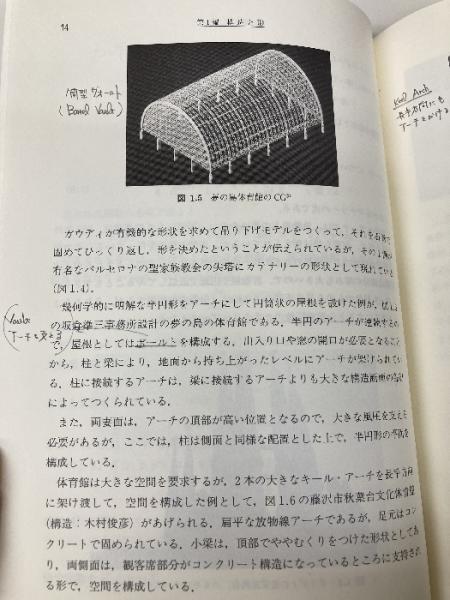 14
第1編 構造と形
筒型ヴォールト
(Barrel Vault)
Keel Arch
図 1.5 夢の島体育館の CG
ガウディが有機的な形状を求めて吊り下げモデルをつくって，それを石膏で
固めてひっくり返し，形を決めたということが伝えられているが，その
有名なバルセロナの聖家族教会の尖塔にカテナリーの形状として現れている
(図 1.4).
幾何学的に明解な半円形をアーチにして円筒状の屋根を設けた例が，
の坂倉準三事務所設計の夢の島の体育館である．半円のアーチが連続する
屋根としてはボールトを構成する．出入り口や窓の開口が必要となること
から，柱と梁により，地面から持ち上がったレベルにアーチが架けられてい
る．柱に接続するアーチは，梁に接続するアーチよりも大きな構造断面の
によってつくられている．
また，両妻面は，アーチの頂部が高い位置となるので，大きな風圧を支える
必要があるが，ここでは，柱は側面と同様な配置とした上で，半円形の
構成している．
体育館は大きな空間を要求するが，2本の大きなキール・アーチを長手方向
に架け渡して，空間を構成した例として，図 1.6 の藤沢市秋葉台文化体育館
(構造：木村俊彦) があげられる．扁平な放物線アーチであるが，足元はコン
クリートで固められている．小梁は，頂部でややむくりをつけた形状としてあ
り，両側面は，観客席部分がコンクリート構造になっているところに支持され
る形で，空間を構成している．